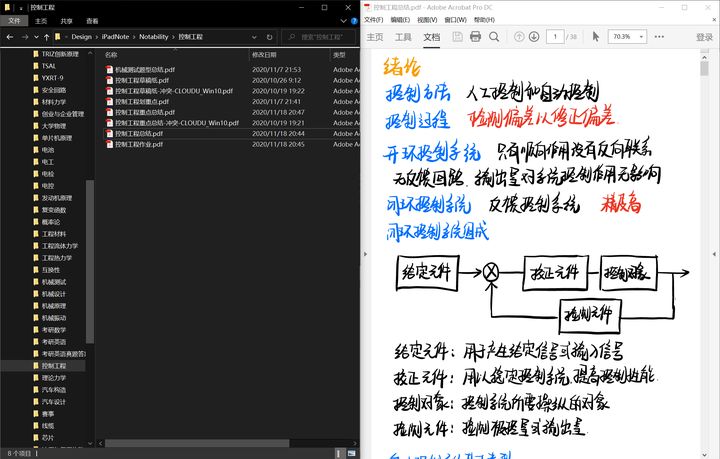 控制工程
文件
主页
共享
查看
Design › iPadNote › Notability › 控制工程
搜索"控制工程"
名称
修改日期
类型
TRIZ创新原理
TSAL
YXRT-9
安全回路
材料力学
创业与企业管理
大学物理
单片机原理
电池
电工
电检
电控
发动机原理
复变函数
概率论
工程材料
工程流体力学
工程热力学
互换性
机械测试
机械设计
机械原理
机械振动
考研数学
考研英语
考研英语真题答
控制工程
理论力学
汽车构造
汽车设计
赛事
线缆
芯片
机械测试题型总结.pdf 2020/11/7 21:53 Adobe Ac
控制工程草稿纸.pdf 2020/10/26 9:12 Adobe Ac
控制工程草稿纸-冲突-CLOUDU_Win10.pdf 2020/10/19 19:22 Adobe Ac
控制工程划重点.pdf 2020/11/7 21:41 Adobe Ac
控制工程重点总结.pdf 2020/11/18 20:47 Adobe Ac
控制工程重点总结-冲突-CLOUDU_Win10.pdf 2020/10/19 19:21 Adobe Ac
控制工程总结.pdf 2020/11/18 20:44 Adobe Ac
控制工程作业.pdf 2020/11/18 20:45 Adobe Ac
8 个项目
控制工程总结.pdf - Adobe Acrobat Pro DC
文件(F) 编辑(E) 视图(V) 窗口(W) 帮助(H)
主页 工具 文档 1 / 38 70.3% 登录
绪论
控制方法 人工控制和自动控制
控制过程 检测偏差以修正偏差.
开环控制系统 只有顺向作用没有反向联系
无反馈回路.输出量对系统控制作用无影响
闭环控制系统 反馈控制系统 精度高
闭环控制系统组成
给定元件
校正元件
控制对象
检测元件
给定元件：用于产生给定信号或输入信号
校正元件：用以稳定控制系统,提高控制性能.
控制对象：控制系统所要操纵的对象
检测元件：检测被控量或输出量.